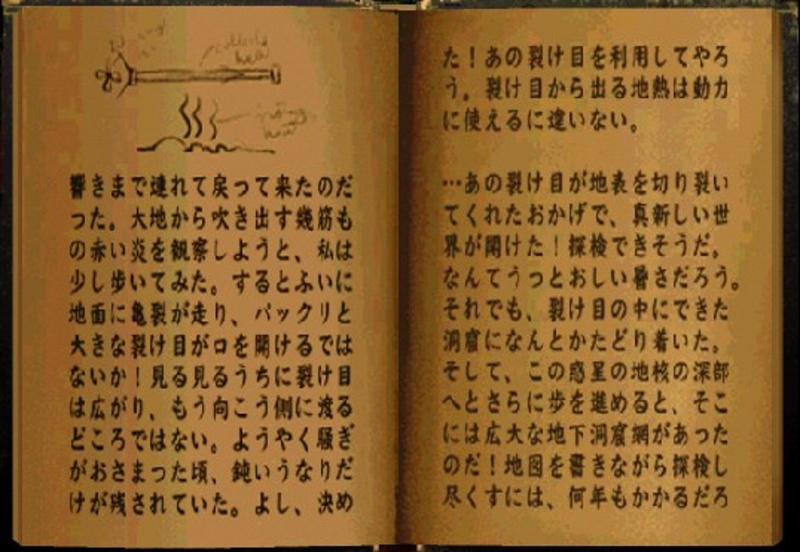 collects
heat
響きまで連れて戻って来たのだ
った。大地から吹き出す幾筋も
の赤い炎を観察しようと、私は
少し歩いてみた。するとふいに
地面に亀裂が走り、パックリと
大きな裂け目が口を開けるでは
ないか！見る見るうちに裂け目
は広がり、もう向こう側に渡る
どころではない。ようやく騒ぎ
がおさまった頃、鈍いうなりだ
けが残されていた。よし、決め
た！あの裂け目を利用してやろ
う。裂け目から出る地熱は動力
に使えるに違いない。
…あの裂け目が地表を切り裂い
てくれたおかげで、真新しい世
界が開けた！探検できそうだ。
なんてうっとおしい暑さだろう。
それでも、裂け目の中にできた
洞窟になんとかたどり着いた。
そして、この惑星の地核の深部
へとさらに歩を進めると、そこ
には広大な地下洞窟網があった
のだ！地図を書きながら探検し
尽くすには、何年もかかるだろ